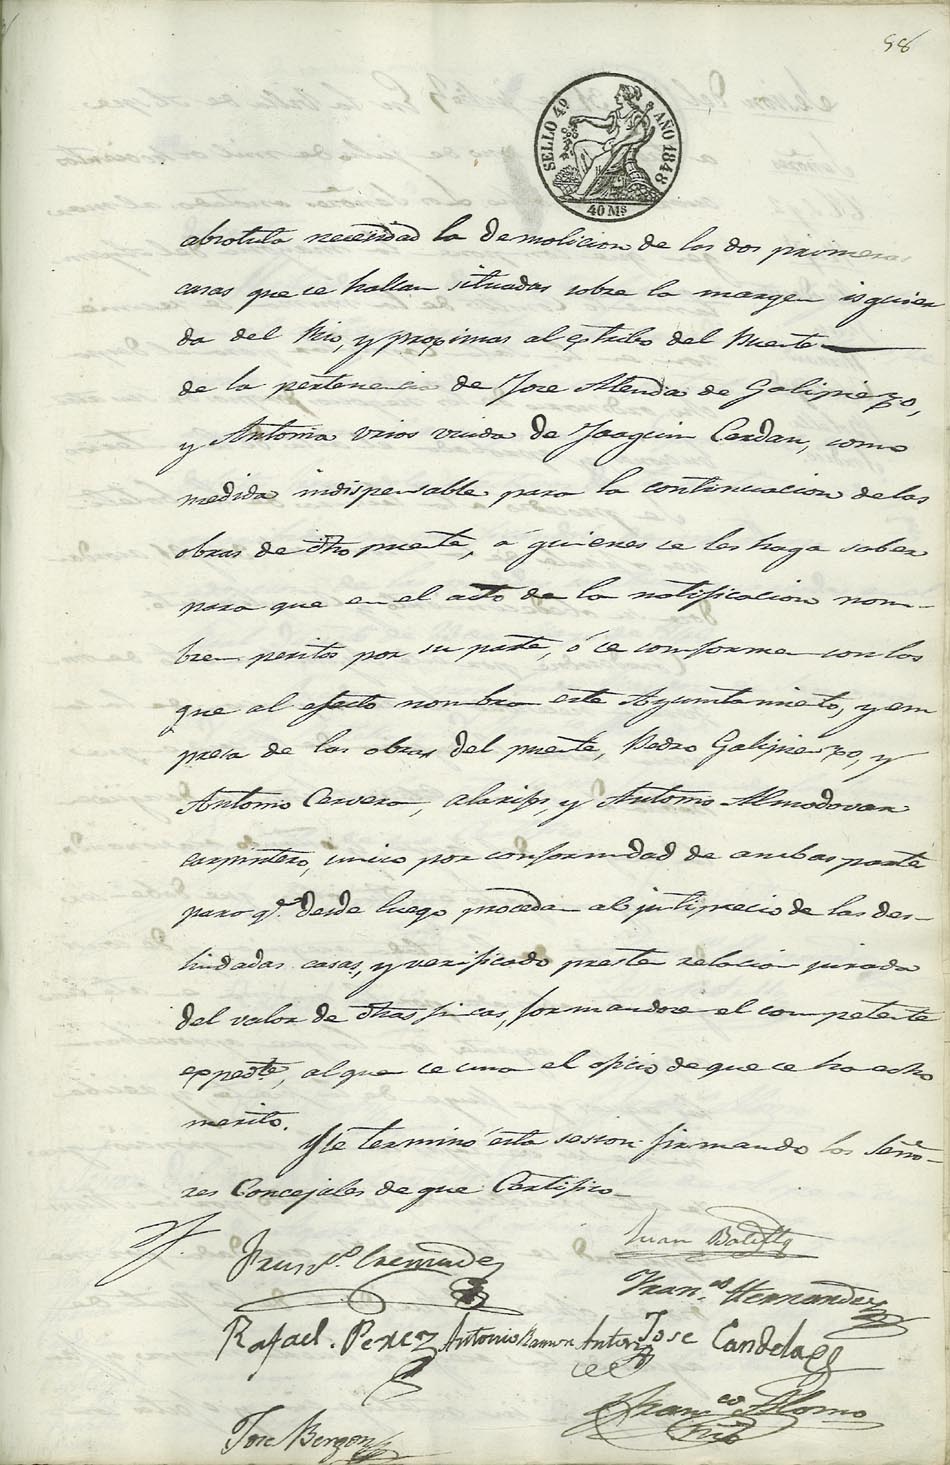 58
SELLO 4º AÑO 1848
40 Ms
absoluta necesidad la demolicion de las dos primeras
casas que se hallan situadas sobre la margen isquier
da del Rio, y proximas al estribo del Puente
de la pertenencia de Jose Atenda de Galipienzo,
y Antonia viuda de Joaquin Cerdan, como
medida indispensable para la continuacion de las
obras de dho puente, á quienes se les haga saber
para que en el acto de la notificacion nom-
bren peritos por su parte, ó se conformen con los
que al efecto nombra este Ayuntamiento, y em
presa de las obras del puente, Pedro Galipienzo, y
Antonio Cervera, alarifes, y Antonio Almodovar
carpintero, unico por conformidad de ambas partes
para q.e desde luego procedan al justiprecio de las des-
lindadas casas, y verificado preste relacion jurada
del valor de dhas fincas, formandose el competente
expedte, al que se una el oficio de que se ha echo
merito.
Y se terminó esta sesion firmando los Seño-
res Concejales de que Certifico
Franco. Cremades
Juan Batlle
Fran.co Hernandez
Rafael Perez Antonio Ramon Jose Candela
Franco Alorno
Jose Bergon